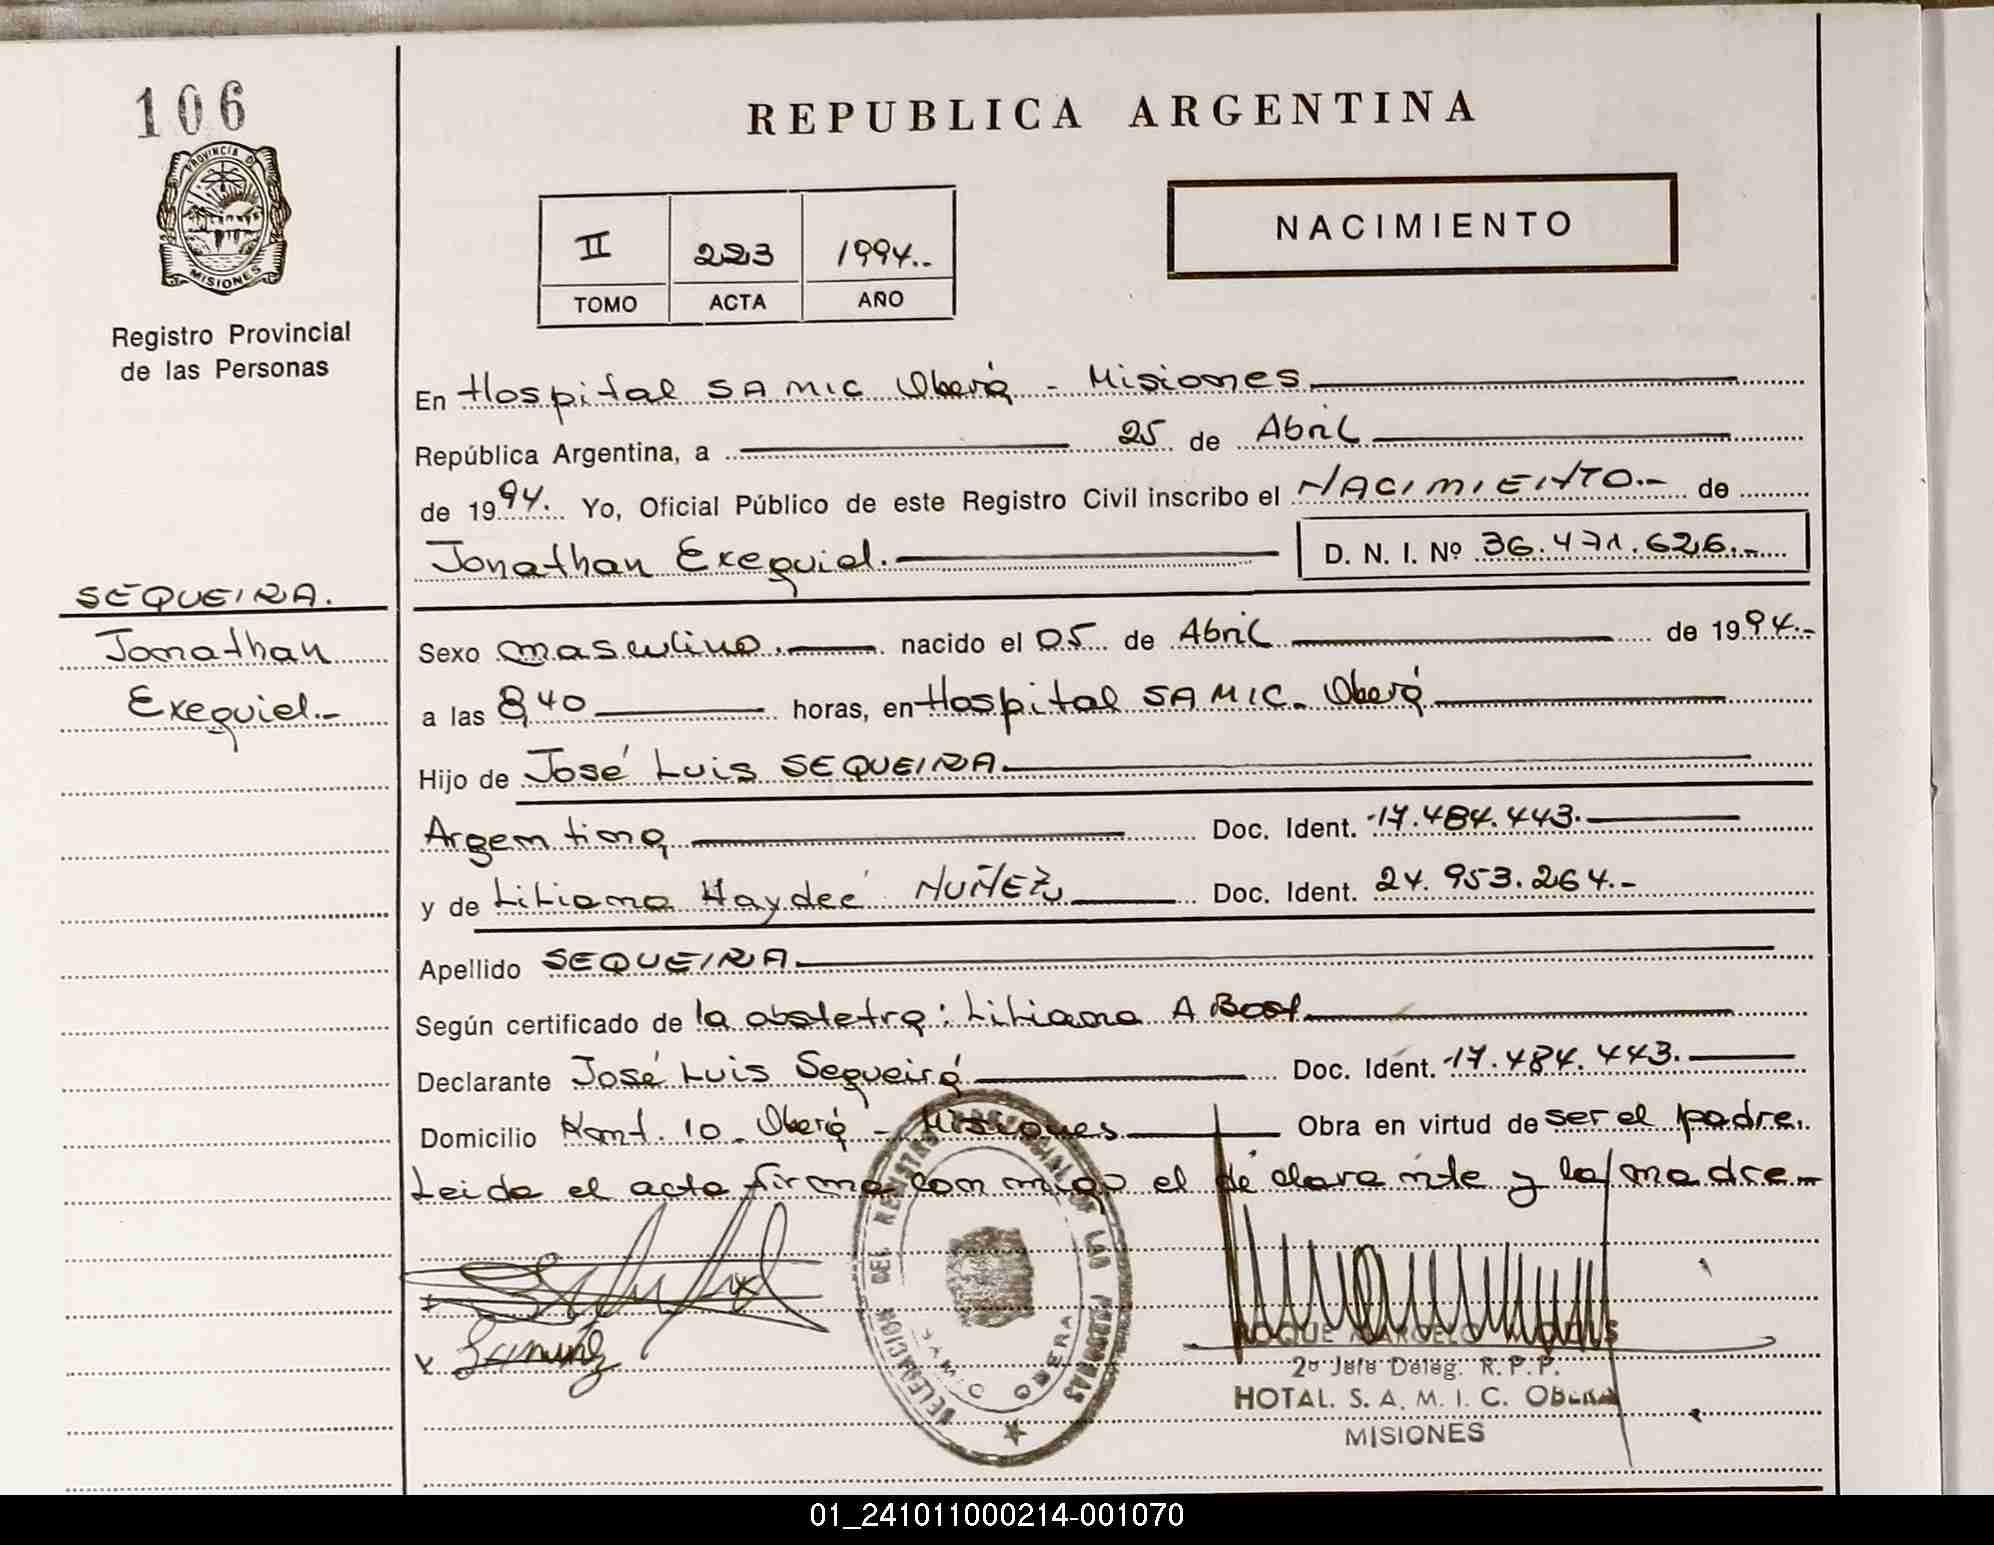 106
PROVINCIA D
MISIONES
Registro Provincial
de las Personas
SEQUEIRA.
Jonathan
Exequiel.-
REPUBLICA ARGENTINA
NACIMIENTO
II 223 1994..
TOMO ACTA AÑO
En Hospital SAMIC Oberá - Misiones
República Argentina, a 25 de Abril
de 1994. Yo, Oficial Público de este Registro Civil inscribo el NACIMIENTO.- de
Jonathan Exequiel. D. N. I. Nº 36.471.626.-
Sexo masculino. nacido el 05 de Abril de 1994.-
a las 8,40 horas, en Hospital SAMIC. Oberá
Hijo de José Luis SEQUEIRA
Argentina Doc. Ident. 17.484.443.
y de Liliana Haydeé NUÑEZ Doc. Ident. 24.953.264.-
Apellido SEQUEIRA.
Según certificado de la obstetra: Liliana A
Declarante José Luis Sequeira Doc. Ident. 17.484.443.
Domicilio 10. Oberá - Misiones Obra en virtud de ser el padre.
Leida el acta firma con migo el declarante y la madre
DELEGACION DEL REGISTRO PROVINCIAL DE LAS PERSONAS
S.A.M.I.C. OBERA
ROQUE MARCELO
2º Jefe Deleg. R. P. P.
HOTAL. S. A. M. I. C. OBERA
MISIONES
01_241011000214-001070